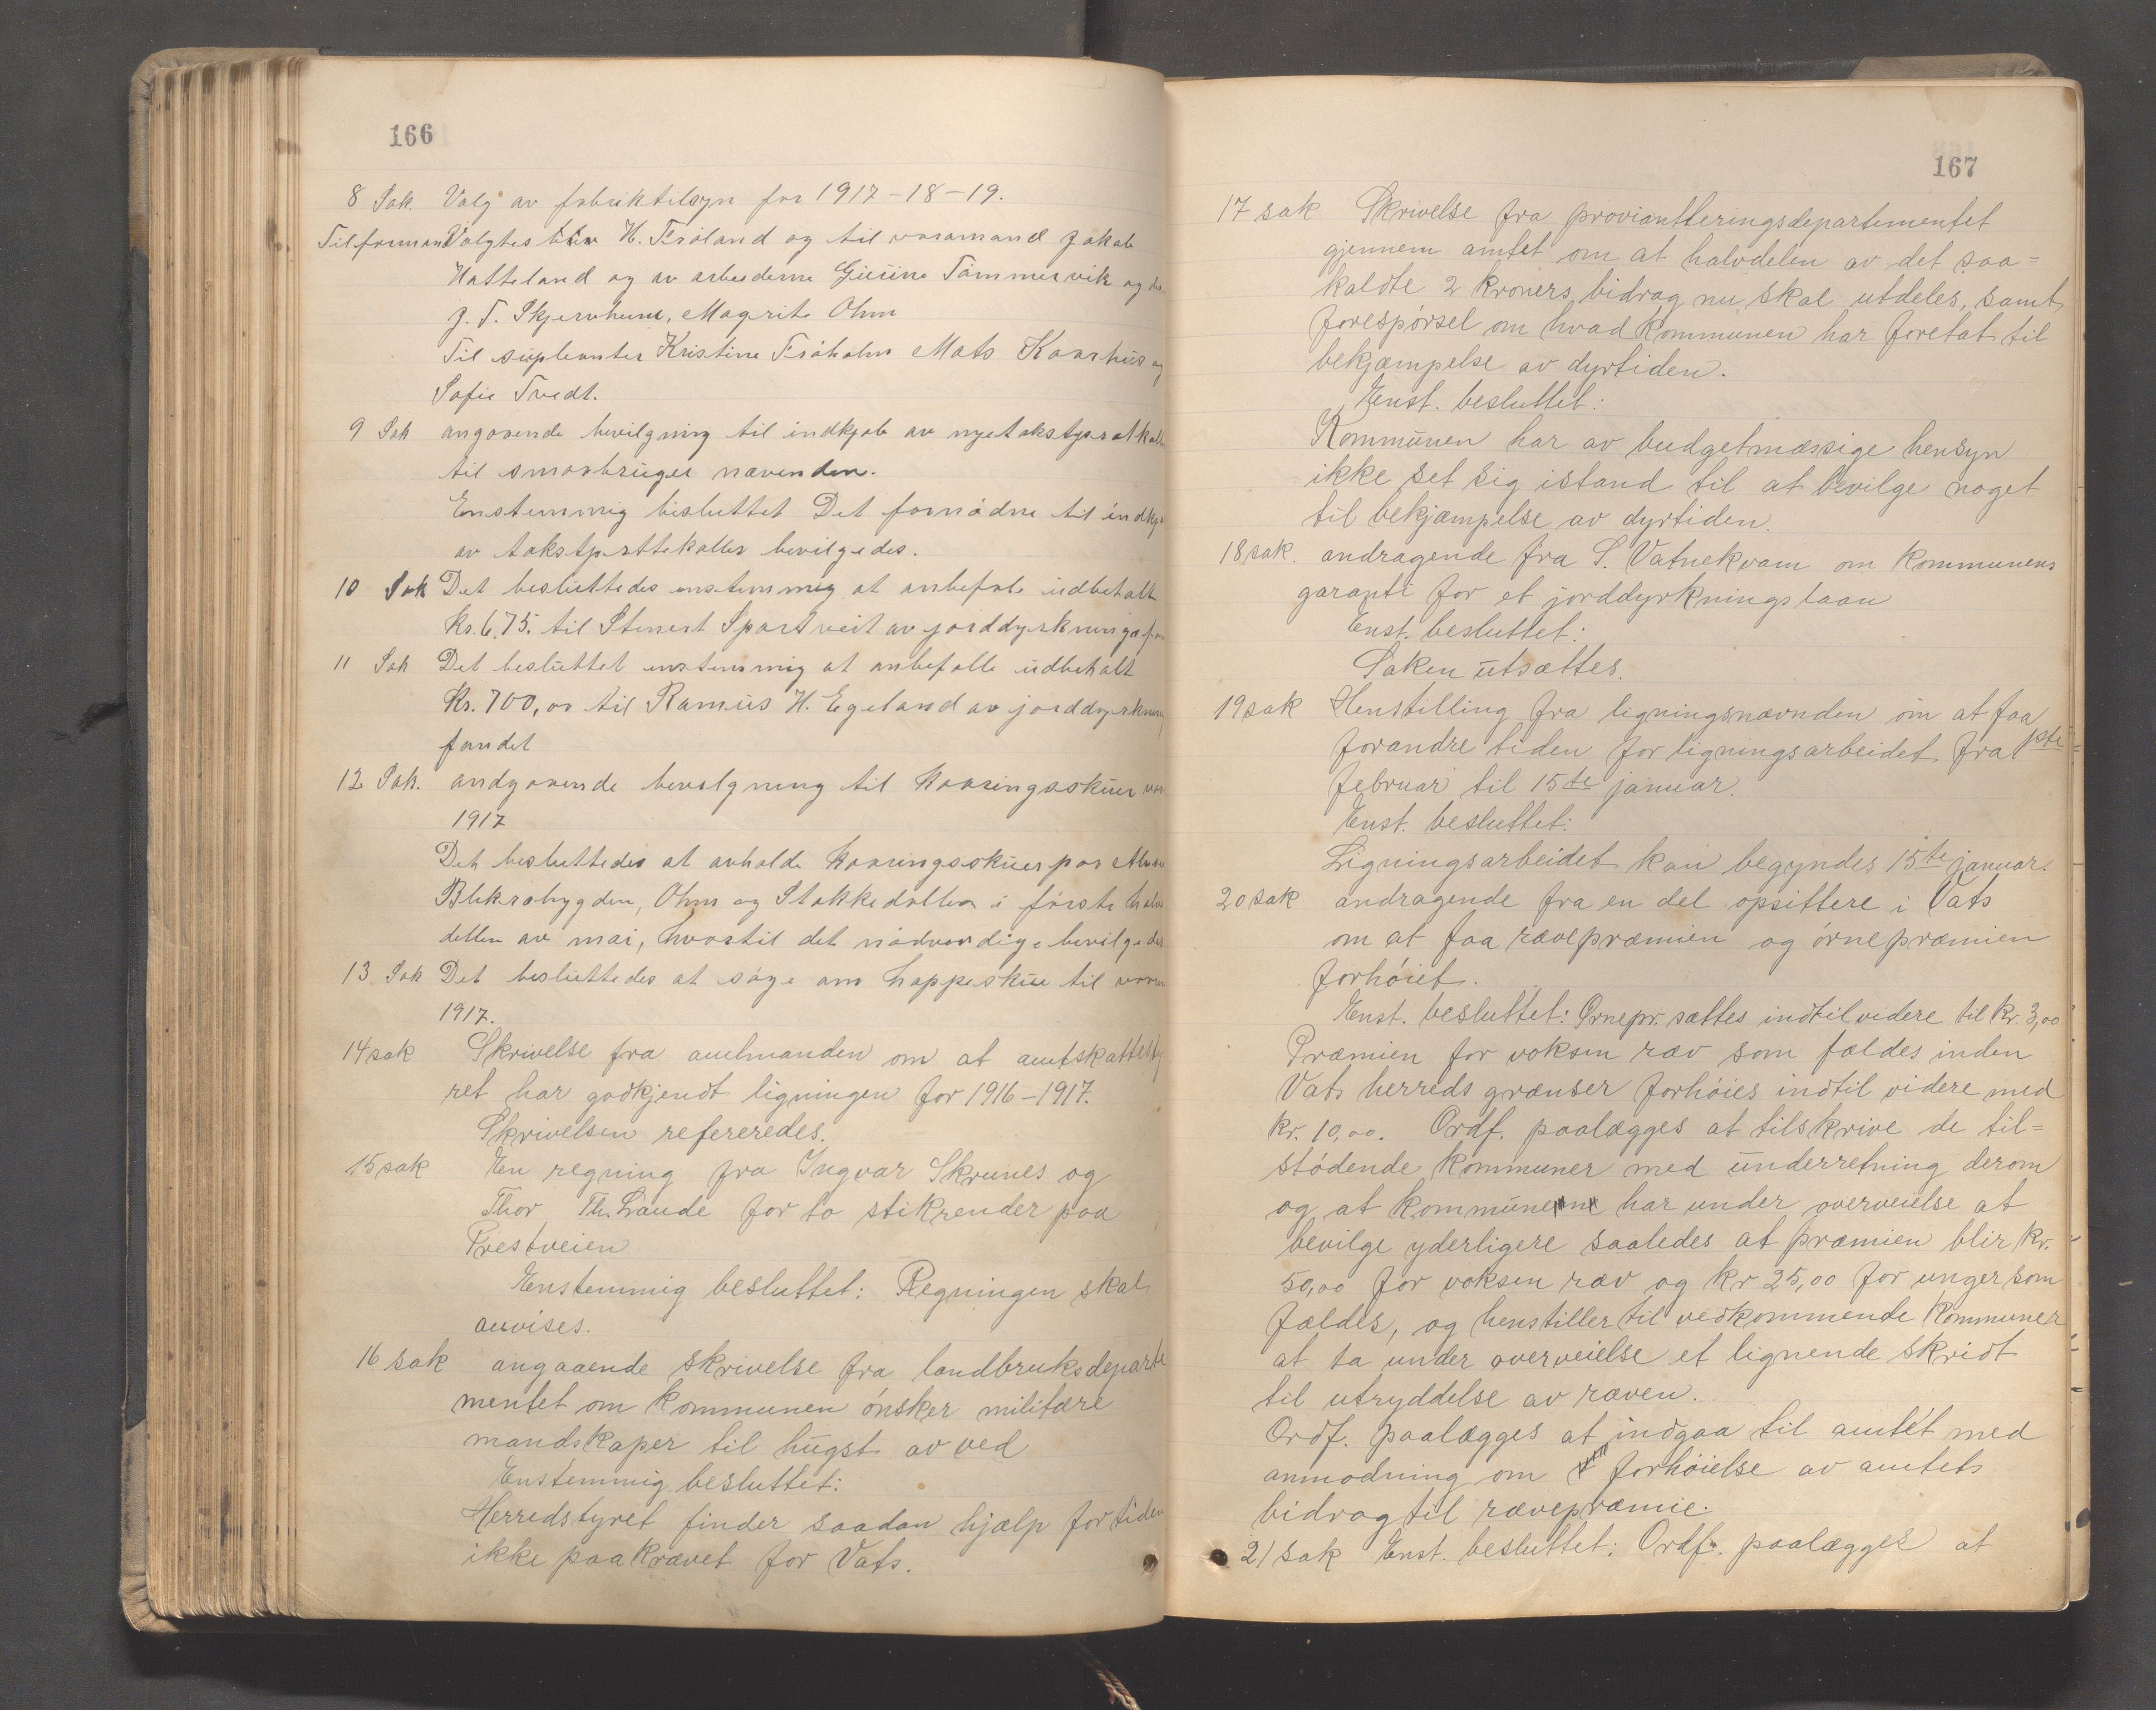 166
8 Sak. Valg av fabriktilsyn for 1917-18-19.
Til formand Valgtes H. Fröland og til varamand Jakob
Hatteland og av arbeiderne Gurine Tömmervik og
J. T. Skjervheim, Magrite Ohm
Til suplianter Kristine Fröholm Mats Kaarhus og
Sofie Tvedt.
9 Sak angaaende bevilgning til indkjøb av nye
til smaabruger nævenden.
Enstemmig besluttet Det fornödne til
av bevilgedes.
10 Sak Det besluttedes enstemmig at anbefale udbetalt
Kr. 675. til Stenert av jorddyrknings
11 Sak Det besluttet enstemmig at anbefalle udbetalt
Kr. 700,00 til Ramus H. Egeland av jorddyrkning
fondet
12 Sak. andgaaende bevilgning til kaaringsskuer
1917
Det besluttedes at avholde kaaringsskuer paa
Blikrabygden, Ohm og Stakkedallen i förste halv
dellen av mai, hvortil det nödvendige bevilgedes
13 Sak Det besluttedes at söge om hoppeskue til vaaren
1917.
14 sak Skrivelse fra amtmanden om at amtskattesty
ret har godkjendt ligningen for 1916-1917.
Skrivelsen refereredes.
15 sak En regning fra Ingvar Skrunes og
Thor Th. Lande for to stikrender paa
Prestveien
Enstemmig besluttet: Regningen skal
anvises.
16 sak angaaende skrivelse fra landbruksdeparte
mentet om kommunen ønsker militære
mandskaper til hugst av ved
Enstemmig besluttet:
Herredstyret finder saadan hjælp for tiden
ikke paakrævet for Vats.
167
17 sak Skrivelse fra proviantteringsdepartementet
gjennem amtet om at halvdelen av det saa=
kaldte 2 kroners bidrag nu skal utdeles, samt
forespørsel om hvad kommunen har foretat til
bekjæmpelse av dyrtiden.
Enst. besluttet:
Kommunen har av budgetmæssige hensyn
ikke set sig istand til at bevilge noget
til bekjæmpelse av dyrtiden.
18 sak. andragende fra S. Vatnekvam om kommunens
garanti for et jorddyrkningslaan
Enst. besluttet:
Saken utsættes.
19 sak Henstilling fra ligningsnævnden om at faa
forandre tiden for ligningsarbeidet fra 1ste
februar til 15te januar.
Enst. besluttet:
Ligningsarbeidet kan begyndes 15te januar.
20 sak andragende fra en del opsittere i Vats
om at faa rævepræmien og ørnepræmien
forhöiet.
Enst. besluttet: Ørnepr. sættes indtil videre til kr. 3,00
Præmien for voksen ræv som fældes inden
Vats herreds grænser forhöies indtil videre med
kr. 10,00. Ordf. paalægges at tilskrive de til=
stödende kommuner med underretning derom
og at kommunen har under overveielse at
bevilge yderligere saaledes at præmien blir kr.
50,00 for voksen ræv og kr 25,00 for unger som
fældes, og henstiller til vedkommende kommuner
at ta under overveielse et lignende skridt
til utryddelse av ræven.
Ordf. paalægges at indgaa til amtet med
anmodning om forhöielse av amtets
bidrag til rævepræmie.
21 sak Enst. besluttet: Ordf. paalægges at